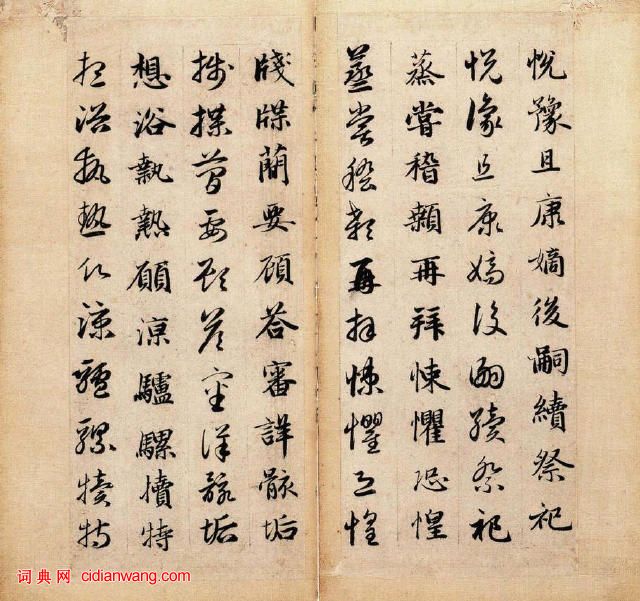 悅豫且康嫡後嗣續祭祀
悅豫且康嫡後嗣續祭祀
蒸嘗稽顙再拜悚懼恐惶
蒸嘗稽顙再拜悚懼恐惶
牋牒蕳要顧荅審詳骸垢
牋牒蕳要顧荅審詳骸垢
想浴執熱願涼驢騾犢特
想浴執熱願涼驢騾犢特
词典网 cidianwang.com